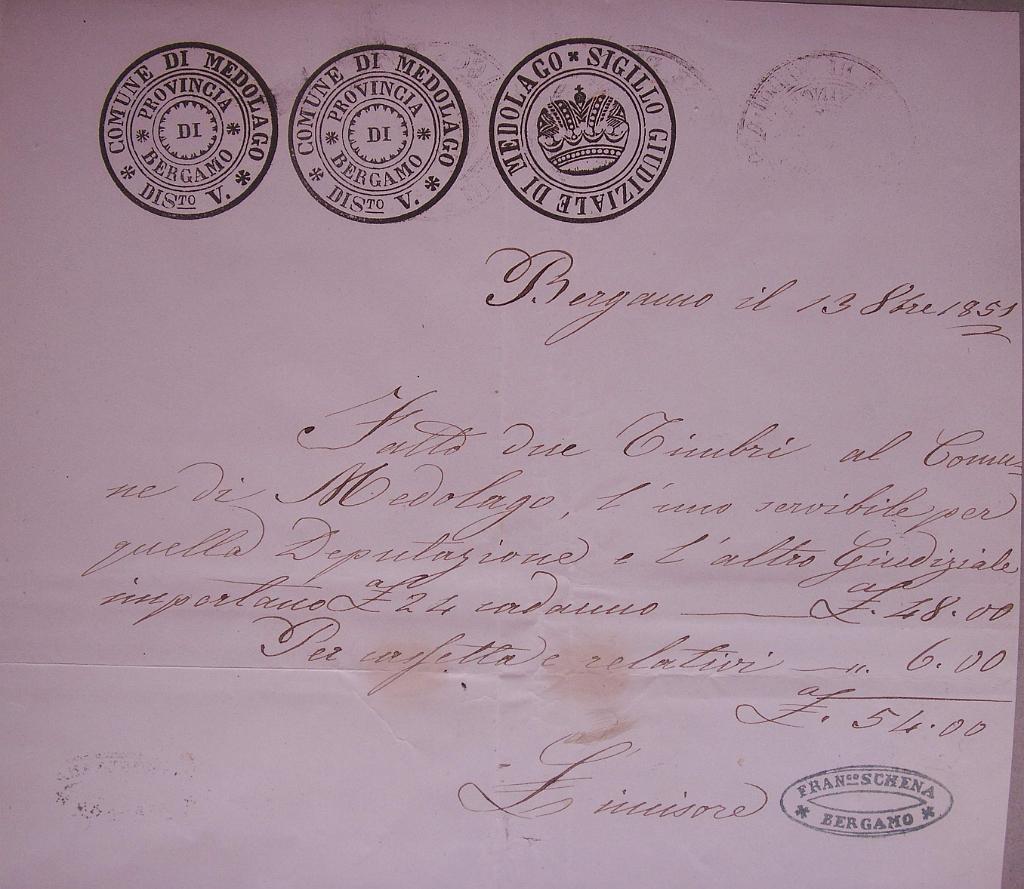 COMUNE DI MEDOLAGO
PROVINCIA
DI
BERGAMO
DISTO V.
COMUNE DI MEDOLAGO
PROVINCIA
DI
BERGAMO
DISTO V.
SIGILLO GIUDIZIALE DI MEDOLAGO
Bergamo il 13 8bre 1851
Fatto due Timbri al Comu=
ne di Medolago, l'uno servibile per
quella Deputazione e l'altro Giudiziale
importano aL 24 cadauno — aL. 48.00
Per cassetta e relativi — ". 6.00
aL. 54.00
L'incisore
FRANCO SCHENA
BERGAMO